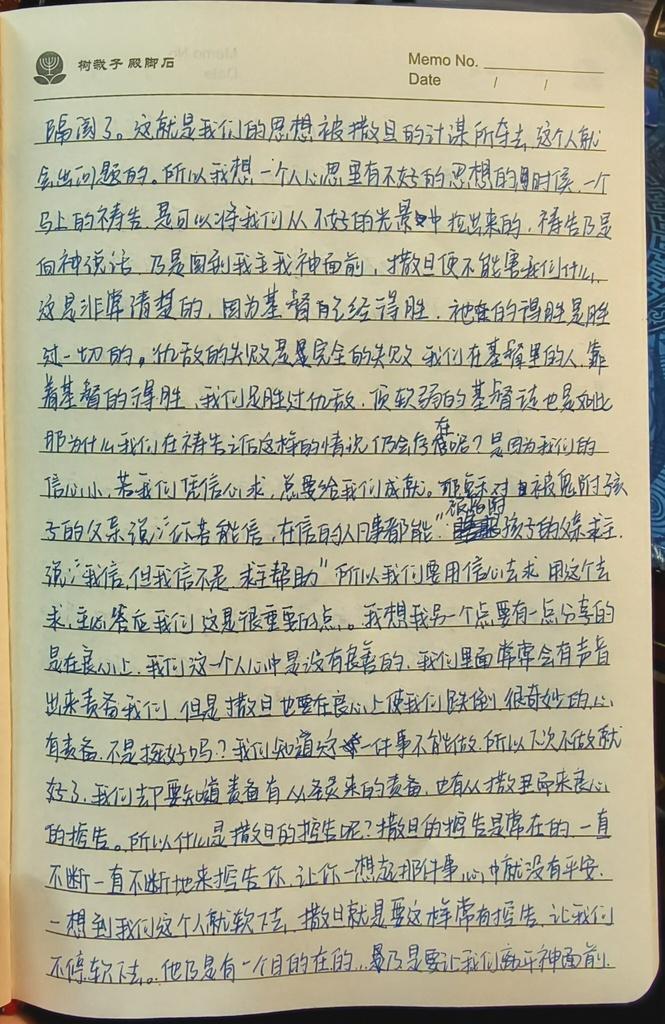 树栽子 殿脚石
Memo No.
Date / /
隔阂了。这就是我们的思想被撒旦的计谋所夺去,这个人就
会出问题的。所以我想,一个人心思里有不好的思想的时候,一个
马上的祷告,是可以将我们从不好的光景中拉出来的,祷告乃是
向神说话,乃是回到我主我神面前,撒旦便不能害我们什么,
这是非常清楚的,因为基督已经得胜,祂的得胜是胜
过一切的。仇敌的失败是完全的失败,我们在基督里的人,靠
着基督的得胜,我们足胜过仇敌,顶软弱的基督徒也是如此
那为什么我们在祷告之后这样的情况仍会存在呢?是因为我们的
信心小,若我们凭信心求,总要给我们成就。耶稣对被鬼附孩
子的父亲说:"你若能信,在信的人凡事都能"被鬼附孩子的父亲求主
说:"我信,但我信不足,求主帮助"所以我们要用信心去求,用这个去
求,主必答应我们,这是很重要的点。我想我另一个点要有一点分享的
是在良心上,我们这一个人心中是没有良善的,我们里面常常会有声音
出来责备我们,但是撒旦也要在良心上使我们跌倒,很奇妙的,心
有责备,不是挺好吗?我们知道这一件事不能做,所以下次不做就
好了,我们却要知道责备有从圣灵来的责备,也有从撒旦而来良心
的控告。所以什么是撒旦的控告呢?撒旦的控告是常在的,一直
不断一直不断地来控告你,让你一想起那件事,心中就没有平安,
一想到我们这个人就软下去,撒旦就是要这样常有控告,让我们
不停软下去。他乃是有一个目的在的,乃是要让我们离开神面前.